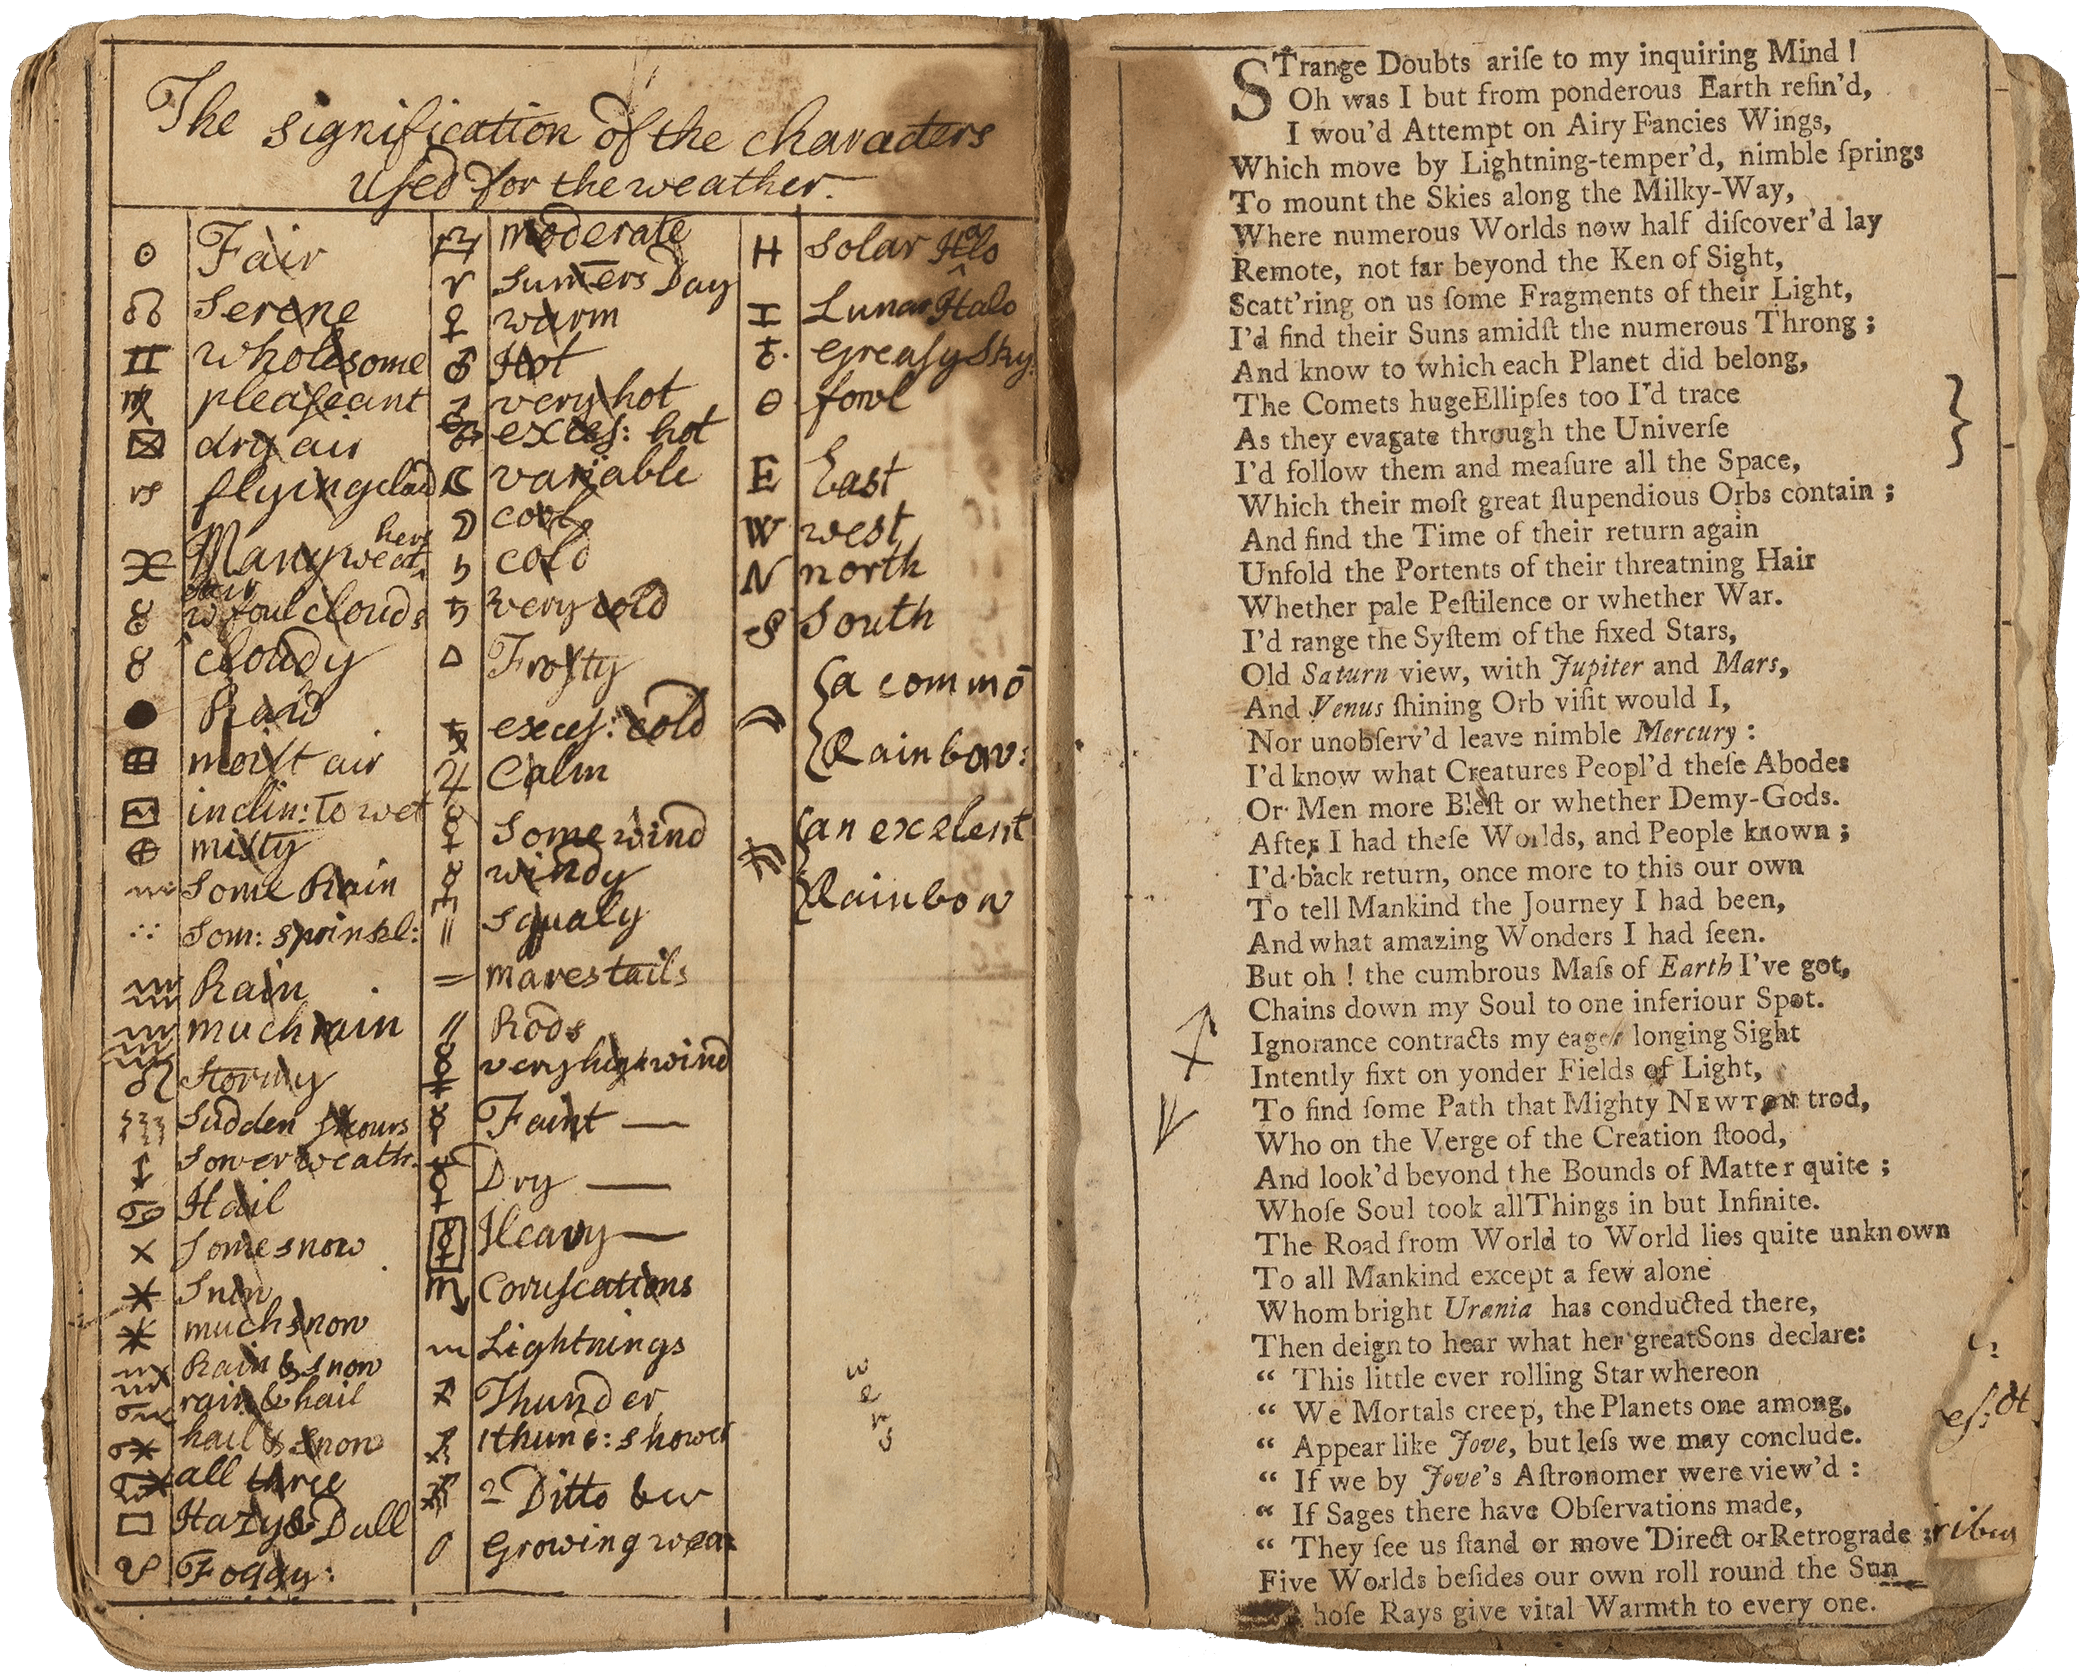 The signification of the characters
used for the weather.
☉ Fair
☊ Serene
♊ wholesome
♍ pleaſeant
dry air
flying cloud
Many weathers
w foul clouds
♉ cloudy
moiſt air
inclin: To wet
miſty
Some Rain
Som: sprinkl:
Rain
much rain
♌ Stormy
Sudden ſhours
Sower weath.
♋ Hail
Some snow
Snow
much snow
Rain & snow
rain & hail
hail & snow
all three
Hazy & Dull
Foggy:
♎ moderate
♈ Sum̄ers Day
♀ warm
♂ Hot
very hot
exceſ: hot
☾ variable
cool
cold
♄ very cold
Froſty
exceſ: cold
♃ Calm
Some wind
windy
Squaly
mares tails
Rods
very high wind
Faint —
Dry —
Heavy —
♏ Coruſcations
Lightnings
Thunder
1 thun: & shower
2 Ditto &c
Growing wea
H Solar Halo
Lunar Halo
Greaſy Sky.
fowl
E East
W west
N north
S South
a commō
Rainbow:
an exelent
Rainbow
STrange Doubts ariſe to my inquiring Mind !
Oh was I but from ponderous Earth refin'd,
I wou'd Attempt on Airy Fancies Wings,
Which move by Lightning-temper'd, nimble ſprings
To mount the Skies along the Milky-Way,
Where numerous Worlds now half diſcover'd lay
Remote, not far beyond the Ken of Sight,
Scatt'ring on us ſome Fragments of their Light,
I'd find their Suns amidſt the numerous Throng ;
And know to which each Planet did belong,
The Comets huge Ellipſes too I'd trace
As they evagate through the Univerſe
I'd follow them and meaſure all the Space,
Which their moſt great ſtupendious Orbs contain ;
And find the Time of their return again
Unfold the Portents of their threatning Hair
Whether pale Peſtilence or whether War.
I'd range the Syſtem of the fixed Stars,
Old Saturn view, with Jupiter and Mars,
And Venus ſhining Orb viſit would I,
Nor unobſerv'd leave nimble Mercury :
I'd know what Creatures Peopl'd theſe Abodes
Or Men more Bleſt or whether Demy-Gods.
After I had theſe Worlds, and People known ;
I'd back return, once more to this our own
To tell Mankind the Journey I had been,
And what amazing Wonders I had ſeen.
But oh ! the cumbrous Maſs of Earth I've got,
Chains down my Soul to one inferiour Spot.
Ignorance contracts my eager longing Sight
Intently fixt on yonder Fields of Light,
To find ſome Path that Mighty NEWTON trod,
Who on the Verge of the Creation ſtood,
And look'd beyond the Bounds of Matter quite ;
Whoſe Soul took all Things in but Infinite.
The Road from World to World lies quite unknown
To all Mankind except a few alone
Whom bright Urania has conducted there,
Then deign to hear what her great Sons declare:
“ This little ever rolling Star whereon
“ We Mortals creep, the Planets one among,
“ Appear like Jove, but leſs we may conclude.
“ If we by Jove's Aſtronomer were view'd :
“ If Sages there have Obſervations made,
“ They ſee us ſtand or move Direct or Retrograde ;
Five Worlds beſides our own roll round the Sun
hoſe Rays give vital Warmth to every one.